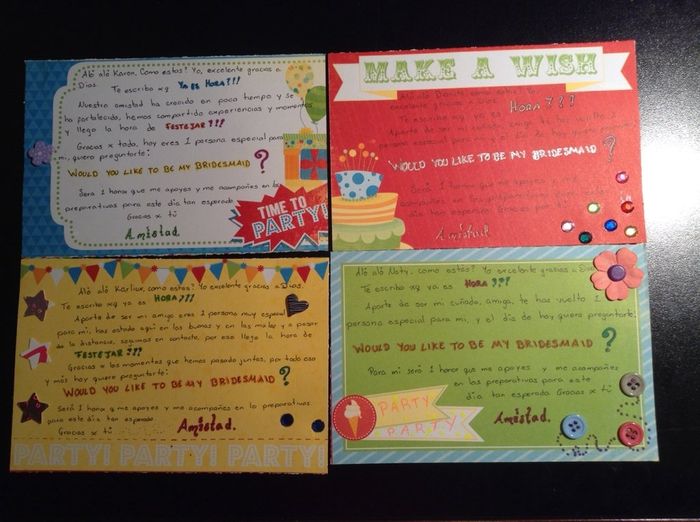 Aló aló Karen, Como estas? Yo, excelente gracias a
Dios.
Te escribo xq Ya es Hora???!
Nuestra amistad ha crecido en poco tiempo y se
ha fortalecido, hemos compartido experiencias y momentos
y llego la hora de FESTEJAR???!
Gracias x todo, hoy eres 1 persona especial para
mi, quiero preguntarte:
WOULD YOU LIKE TO BE MY BRIDESMAID ?
Será 1 honor que me apoyes y me acompañes en los
preparativos para este día tan esperado.
Gracias x tú
Amistad.
TIME TO
PARTY!
MAKE A WISH
Aló aló como estas? Yo
excelente gracias a Dios.
Te escribo xq ya es HORA???!
Aparte de ser mi te has vuelto 1
persona especial para mi, y el día de hoy quiero preguntarte:
WOULD YOU LIKE TO BE MY BRIDESMAID ?
Será 1 honor que me apoyes y me
acompañes en los preparativos para este
día tan esperado. Gracias x tú
Amistad.
Aló aló Karliux, como estas? Yo excelente gracias a Dios.
Te escribo xq ya es HORA???!
Aparte de ser mi amiga eres 1 persona muy especial
para mi, has estado aquí en las buenas y en las malas y a pesar
de la distancia, seguimos en contacto, por eso llego la hora de
FESTEJAR???!
Gracias x los momentos que hemos pasado juntas, por todo eso
y más hoy quiero preguntarte:
WOULD YOU LIKE TO BE MY BRIDESMAID ?
Será 1 honor q me apoyes y me acompañes en la preparativos
para este día tan esperado.
Gracias x tú
Amistad.
PARTY! PARTY! PARTY!
Aló aló Naty, como estas? Yo excelente gracias a Dios.
Te escribo xq ya es HORA???!
Aparte de ser mi cuñada, amiga, te has vuelto 1
persona especial para mi, y el día de hoy quiero preguntarte:
WOULD YOU LIKE TO BE MY BRIDESMAID ?
Para mi será 1 honor que me apoyes y me acompañes
en los preparativos para este
día tan esperado. Gracias x tú
Amistad.
PARTY
PARTY!